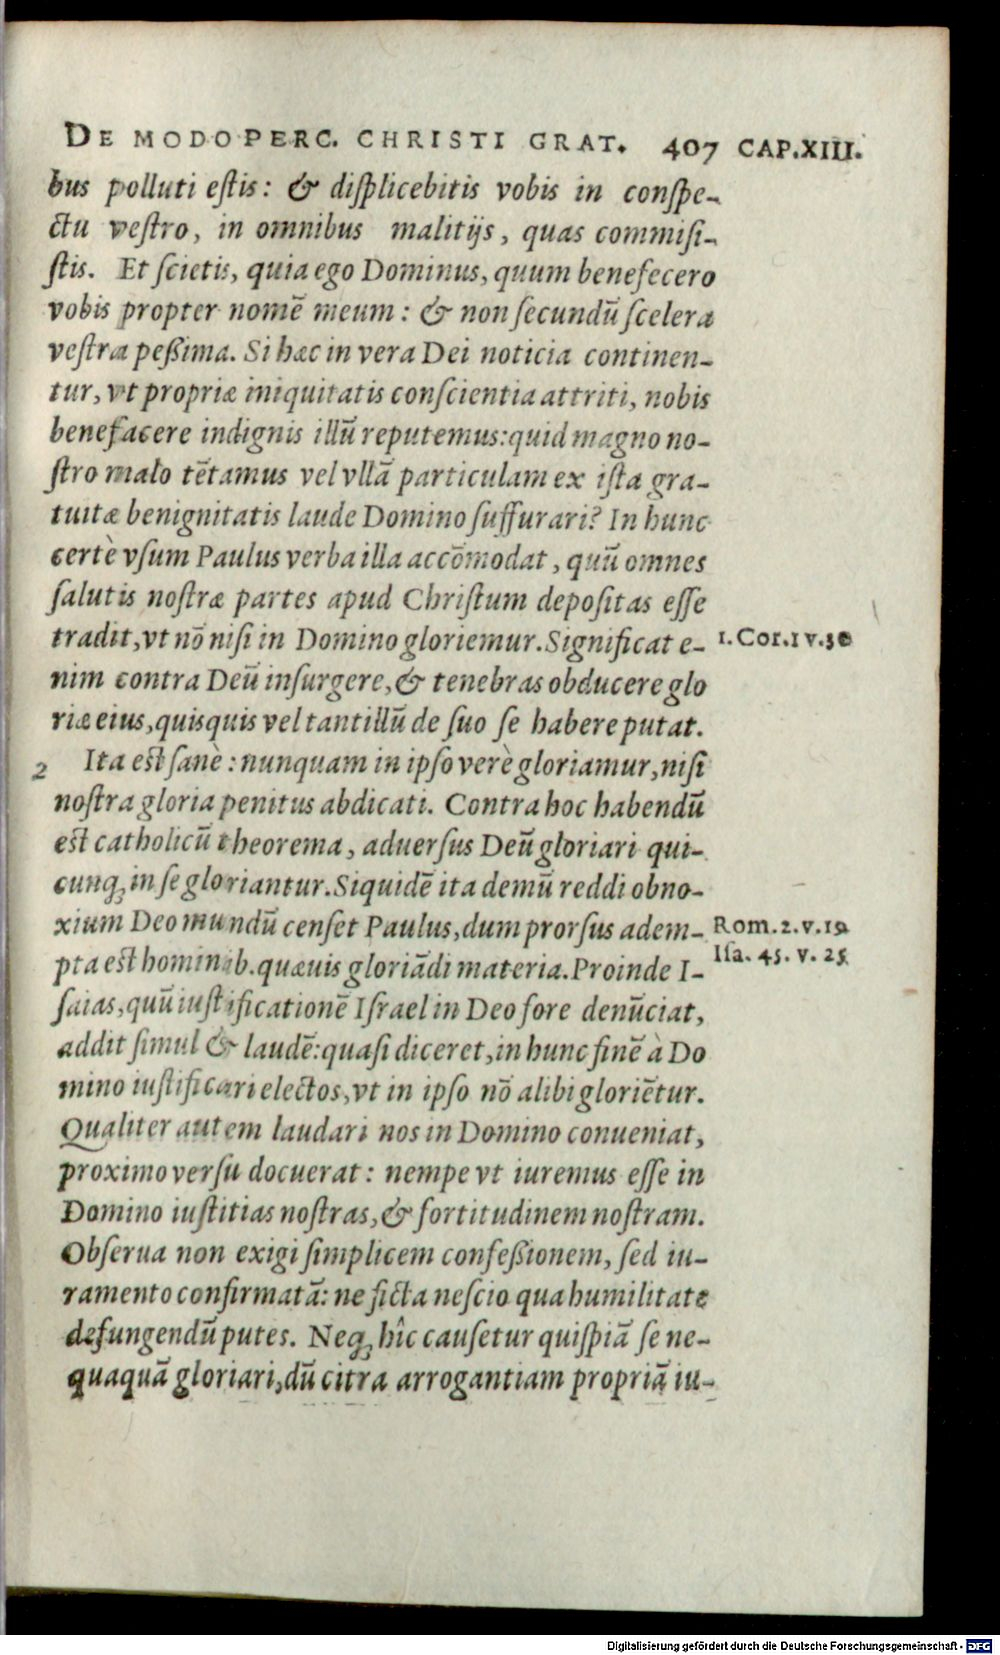 DE MODO PERC. CHRISTI GRAT. 407 CAP.XIII.
bus polluti eſtis: & diſplicebitis vobis in conſpe-
ctu veſtro, in omnibus malitijs, quas commiſi-
ſtis. Et ſcietis, quia ego Dominus, quum benefecero
vobis propter nomē meum: & non ſecundū ſcelera
veſtra peßima. Si hæc in vera Dei noticia continen-
tur, vt propriæ iniquitatis conſcientia attriti, nobis
benefacere indignis illū reputemus: quid magno no-
ſtro malo tētamus vel vllā particulam ex iſta gra-
tuitæ benignitatis laude Domino ſuffurari? In hunc
certè vſum Paulus verba illa accōmodat, quū omnes
ſalutis noſtræ partes apud Chriſtum depoſitas eſſe
tradit, vt nō niſi in Domino gloriemur. Significat e-
1. Cor. 1 v. 30
nim contra Deū inſurgere, & tenebras obducere glo
riæ eius, quisquis vel tantillū de ſuo ſe habere putat.
2 Ita eſt ſanè: nunquam in ipſo verè gloriamur, niſi
noſtra gloria penitus abdicati. Contra hoc habendū
eſt catholicū theorema, aduerſus Deū gloriari qui-
cunq; in ſe gloriantur. Siquidē ita demū reddi obno-
xium Deo mundū cenſet Paulus, dum prorſus adem-
Rom. 2. v. 19
pta eſt hominib. quæuis gloriādi materia. Proinde I-
Iſa. 45. v. 25
ſaias, quū iuſtificationē Iſrael in Deo fore denūciat,
addit ſimul & laudē: quaſi diceret, in hunc finē à Do
mino iuſtificari electos, vt in ipſo nō alibi gloriētur.
Qualiter autem laudari nos in Domino conueniat,
proximo verſu docuerat: nempe vt iuremus eſſe in
Domino iuſtitias noſtras, & fortitudinem noſtram.
Obſerua non exigi ſimplicem confeßionem, ſed iu-
ramento confirmatā: ne ficta neſcio qua humilitate
defungendū putes. Neq; hîc cauſetur quiſpiā ſe ne-
quaquā gloriari, dū citra arrogantiam propriā iu-
Digitalisierung gefördert durch die Deutsche Forschungsgemeinschaft - DFG